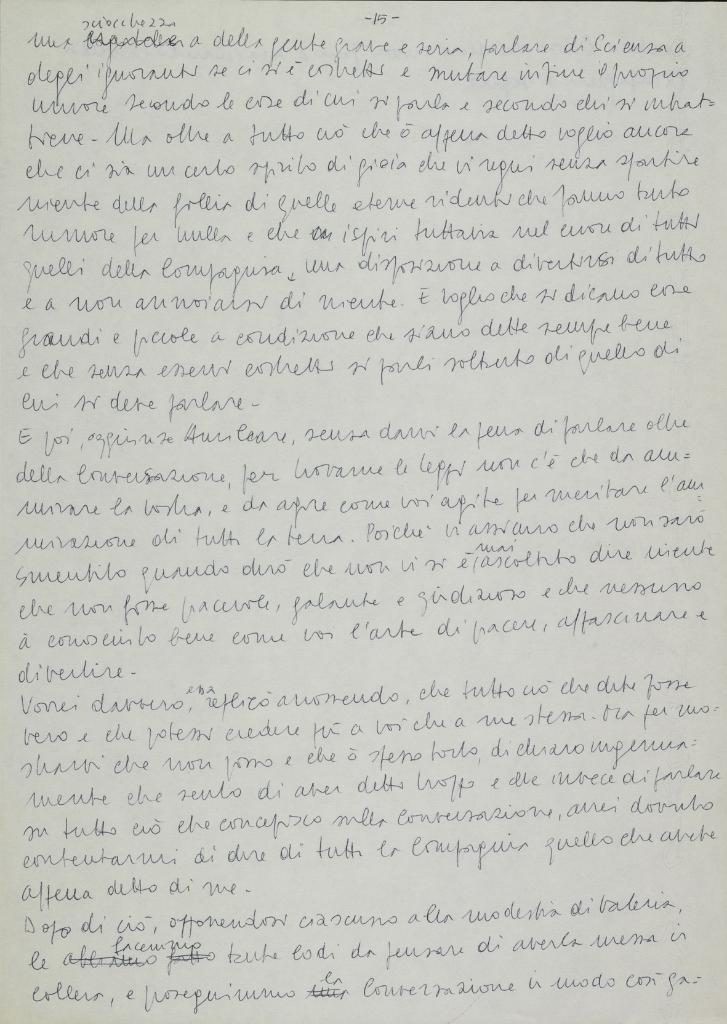 -15-
sciocchezza
una a della gente grave e seria, parlare di Scienza a
degli ignoranti se ci si è costretti e mutare infine il proprio
umore secondo le cose di cui si parla e secondo chi si intrat=
tiene - Ma oltre a tutto ciò che ò appena detto voglio ancora
che ci sia un certo spirito di gioia che vi regni senza spartire
niente della follia di quelle eterne ridenti che fanno tanto
rumore per nulla e che ispiri tuttavia nel cuore di tutti
quelli della Compagnia, una disposizione a divertirsi di tutto
e a non annoiarsi di niente. E voglio che si dicano cose
grandi e piccole a condizione che siano dette sempre bene
e che senza esservi costretti si parli soltanto di quello di
cui si deve parlare -
E poi, aggiunse Amilcare, senza darvi la pena di parlare oltre
della Conversazione, per trovarne le leggi non c'è che da am=
mirare la vostra, e da agire come voi agite per meritare l'am
mirazione di tutta la terra. Poiché vi assicuro che non sarò
smentito quando dirò che non vi si è mai ascoltato dire niente
che non fosse piacevole, galante e giudizioso e che nessuno
à conosciuto bene come voi l'arte di piacere, affascinare e
divertire -
Vorrei davvero, essa replicò arrossendo, che tutto ciò che dite fosse
vero e che potessi credere più a voi che a me stessa. Ma per mo=
strarvi che non posso e che ò spesso torto, dichiaro ingenua=
mente che sento di aver detto troppo e che invece di parlare
su tutto ciò che concepisco sulla Conversazione, avrei dovuto
contentarmi di dire di tutta la Compagnia quello che avete
appena detto di me -
Dopo di ciò, opponendosi ciascuno alla modestia di Valeria,
le facemmo tante lodi da pensare di averla messa in
collera, e proseguimmo la Conversazione in modo così ga=